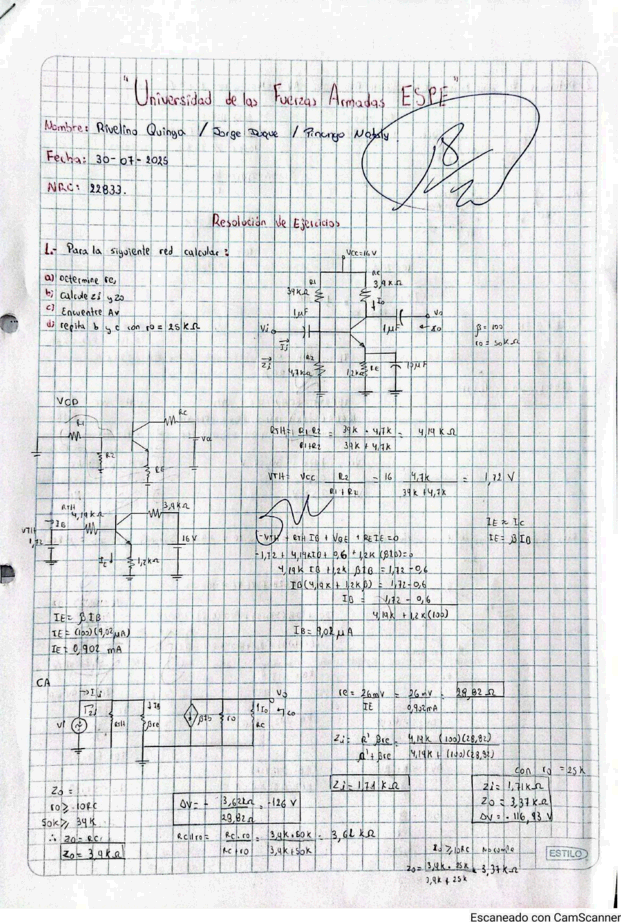 "Universidad de las Fuerzas Armadas ESPE"
Nombre: Rivelino Quinga / Jorge Duque / Pinango Nataly.
18/20
Fecha: 30-07-2025
NRC: 22833.
Resolución de Ejercicios
1.- Para la siguiente red calcular:
a) Determine re,
b) calcule Zi y Zo
c) Encuentre Av
d) repita b y c con ro = 25 KΩ
Vcc=16V
R1
39KΩ
Rc
3,9KΩ
Io
1μF
1μF
Vo
Zo
Vi
Ii
Zi
R2
4,7KΩ
1,2KΩ
RE
10μF
β = 100
ro = 50KΩ
VCD
R1
R2
Rc
RE
Vcc
RTH = R1 R2 / R1+R2 = 39K · 4,7K / 39K + 4,7K = 4,19 KΩ
VTH = Vcc R2 / R1+R2 = 16 4,7K / 39K+4,7K = 1,72 V
RTH
4,19KΩ
3,9KΩ
VTH
1,72
IB
16V
IE
1,2KΩ
-VTH + RTH IB + VBE + REIE=0
-1,72 + 4,19KIB + 0,6 + 1,2K(βIB)=0
4,19K IB + 1,2K βIB = 1,72-0,6
IB(4,19K + 1,2Kβ) = 1,72-0,6
IB = 1,72 - 0,6 / 4,19K + 1,2K(100)
IB = 9,02μA
IE ≈ Ic
IE = βIB
IE = βIB
IE = (100)(9,02μA)
IE = 0,902 mA
CA
Ii
Zi
Vi
RTH
IB
βre
βIb
ro
Io
Rc
Vo
Zo
re = 26mV / IE = 26mV / 0,902mA = 28,82Ω
Zi = R' βre / R'+βre = 4,19K (100)(28,82) / 4,19K + (100)(28,82)
Zi = 1,71 KΩ
Zo =
ro ≥ 10Rc
50K ≥ 39K
∴ Zo = Rc
Zo = 3,9KΩ
AV = - 3,62KΩ / 28,82Ω = -126 V
Rc||ro = Rc·ro / Rc+ro = 3,9K·50K / 3,9K+50K = 3,62 KΩ
con ro = 25K
Zi = 1,71KΩ
Zo = 3,37KΩ
AV = -116,93 V
ro ≥ 10Rc No cumple
Zo = 3,9K · 25K / 3,9K + 25K = 3,37KΩ
ESTILO
Escaneado con CamScanner